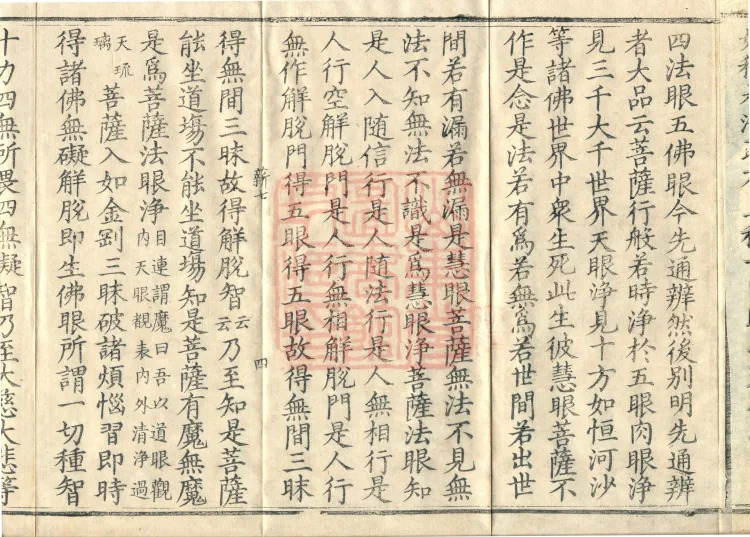 四法眼五佛眼今先通辨然後別明先通辨
者大品云菩薩行般若時淨於五眼肉眼淨
見三千大千世界天眼淨見十方如恒河沙
等諸佛世界中衆生死此生彼慧眼菩薩不
作是念是法若有爲若無爲若世間若出世
間若有漏若無漏是慧眼菩薩無法不見無
法不知無法不識是爲慧眼淨菩薩法眼知
是人入隨信行是人隨法行是人無相行是
人行空解脫門是人行無相解脫門是人行
無作解脫門得五眼得五眼故得無間三昧
薪七
四
得無間三昧故得解脫智云云乃至知是菩薩
能坐道場不能坐道場知是菩薩有魔無魔
是爲菩薩法眼淨目連謂魔曰吾以道眼觀內天眼觀表內外清淨過
天琉璃菩薩入如金剛三昧破諸煩惱習即時
得諸佛無礙解脫即生佛眼所謂一切種智
十力四無所畏四無礙智乃至大慈大悲等